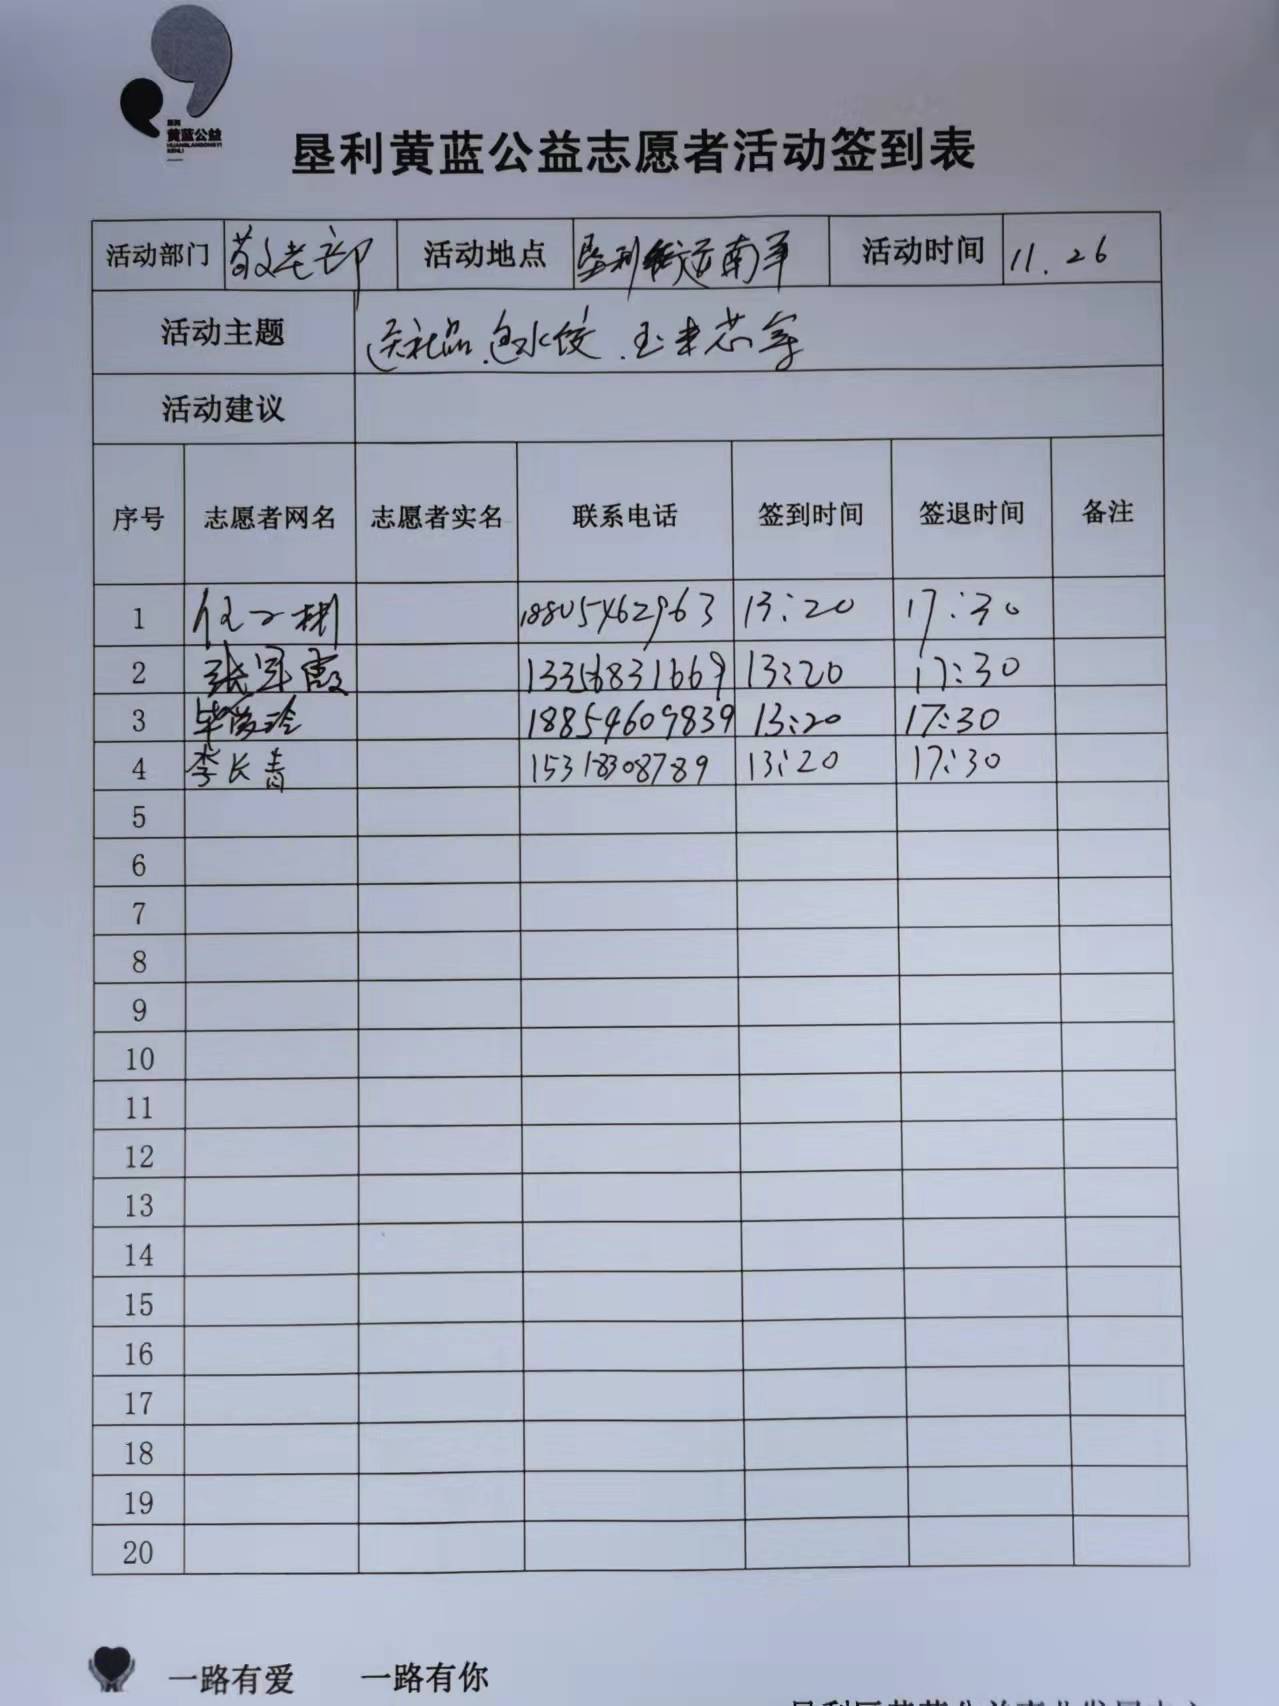 垦利
黄蓝公益
HUANGLANGONGYI
KENLI
垦利黄蓝公益志愿者活动签到表
活动部门 敬老部 活动地点 垦利街道南軍 活动时间 11.26
活动主题 送礼品.包水饺.
活动建议
序号 志愿者网名 志愿者实名 联系电话 签到时间 签退时间 备注
1 18805462963 13:20 17:30
2 张军霞 13356831669 13:20 17:30
3 18854609839 13:20 17:30
4 李长青 15318308789 13:20 17:30
5
6
7
8
9
10
11
12
13
14
15
16
17
18
19
20
一路有爱 一路有你